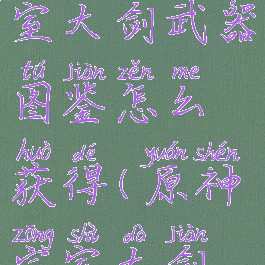 室大剑武器
tú jiàn zěn me
图鉴怎么
huò dé yuán shén
获得(原神
zōng shì dà jiàn
宗室大剑